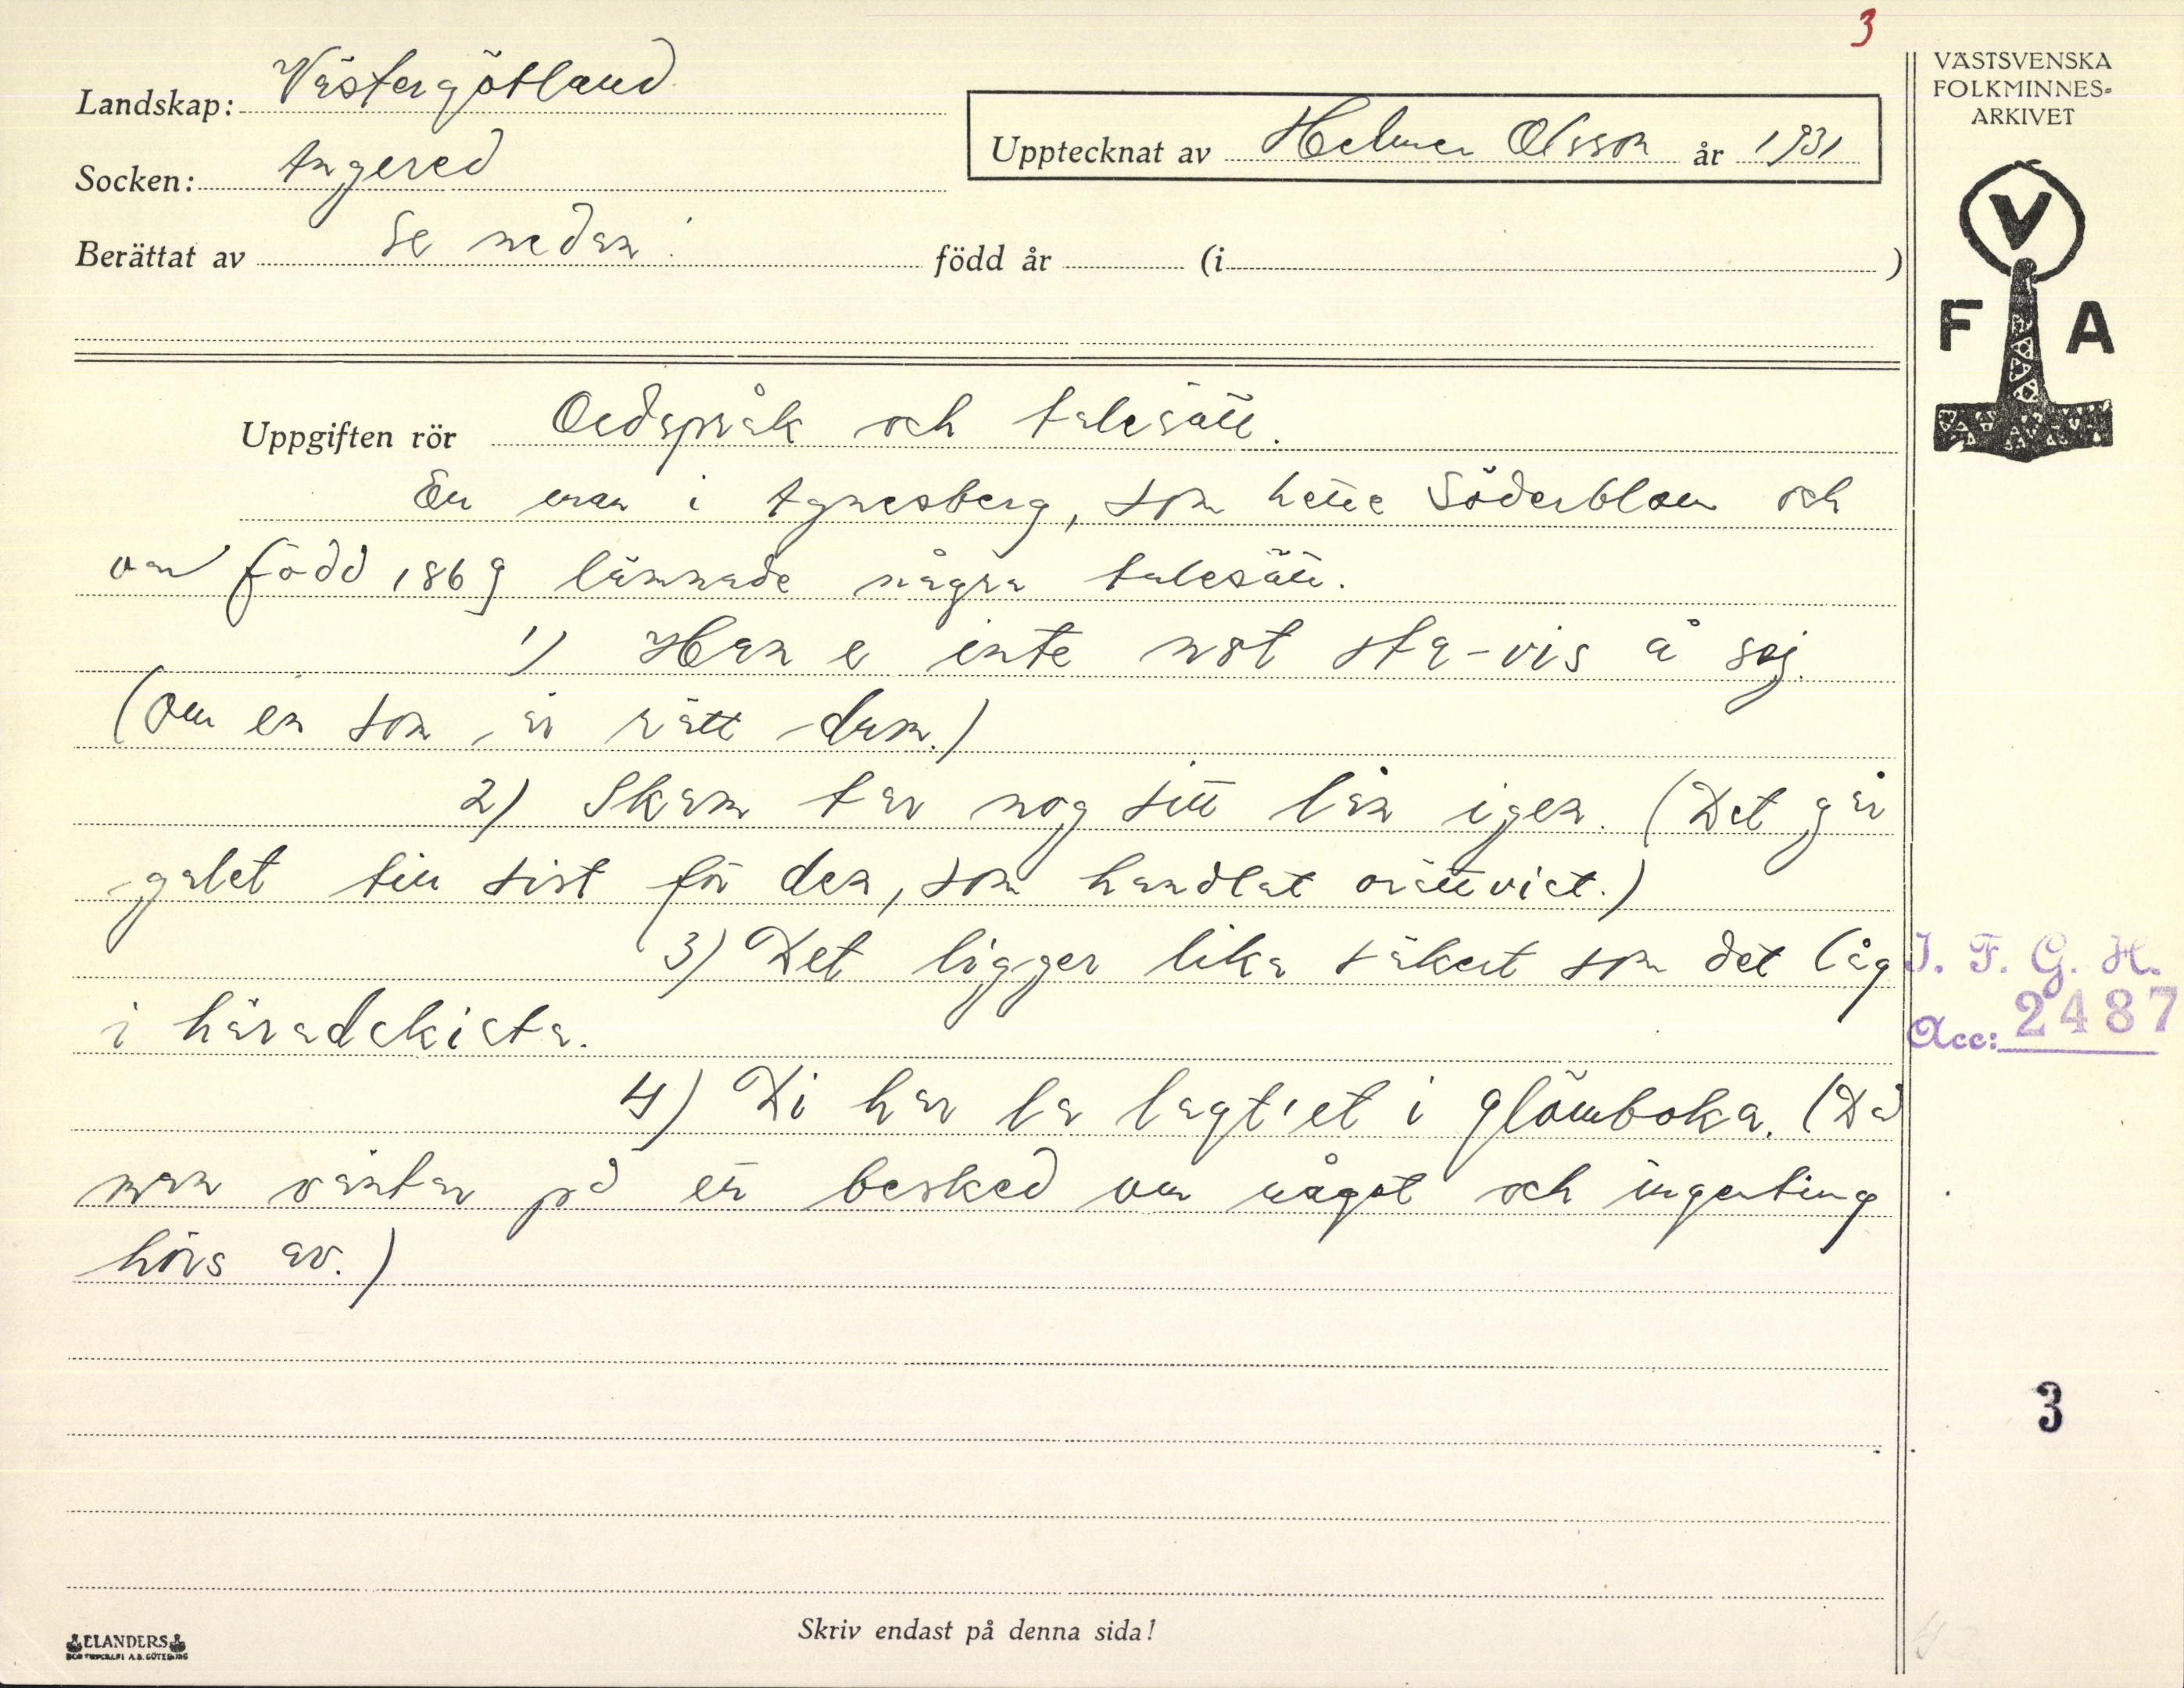 3
Landskap: Västergötland
Socken: Angered
Upptecknat av Helmer Olsson år 1931
Berättat av Se nedan: född år (i )
VÄSTSVENSKA
FOLKMINNES-
ARKIVET
V
F A
Uppgiften rör Ordspråk och talesätt.
En man i Agnesberg, som hette Söderblom och
var född 1869 lämnade några talesätt.
1) Han e inte not sta-vis å sej.
(Om en som är rätt dum.)
2) Skam tar nog sitt lån igen. (Det går
galet till sist för den, som handlat orättvist.)
3) Det ligger lika säkert som det låg
i häradskista.
I. F. G. H.
Acc: 2487
4) Di har la lagt'et i glömboka. (Då
man väntar på ett besked om något och ingenting
hörs av.)
3
Skriv endast på denna sida!
ELANDERS